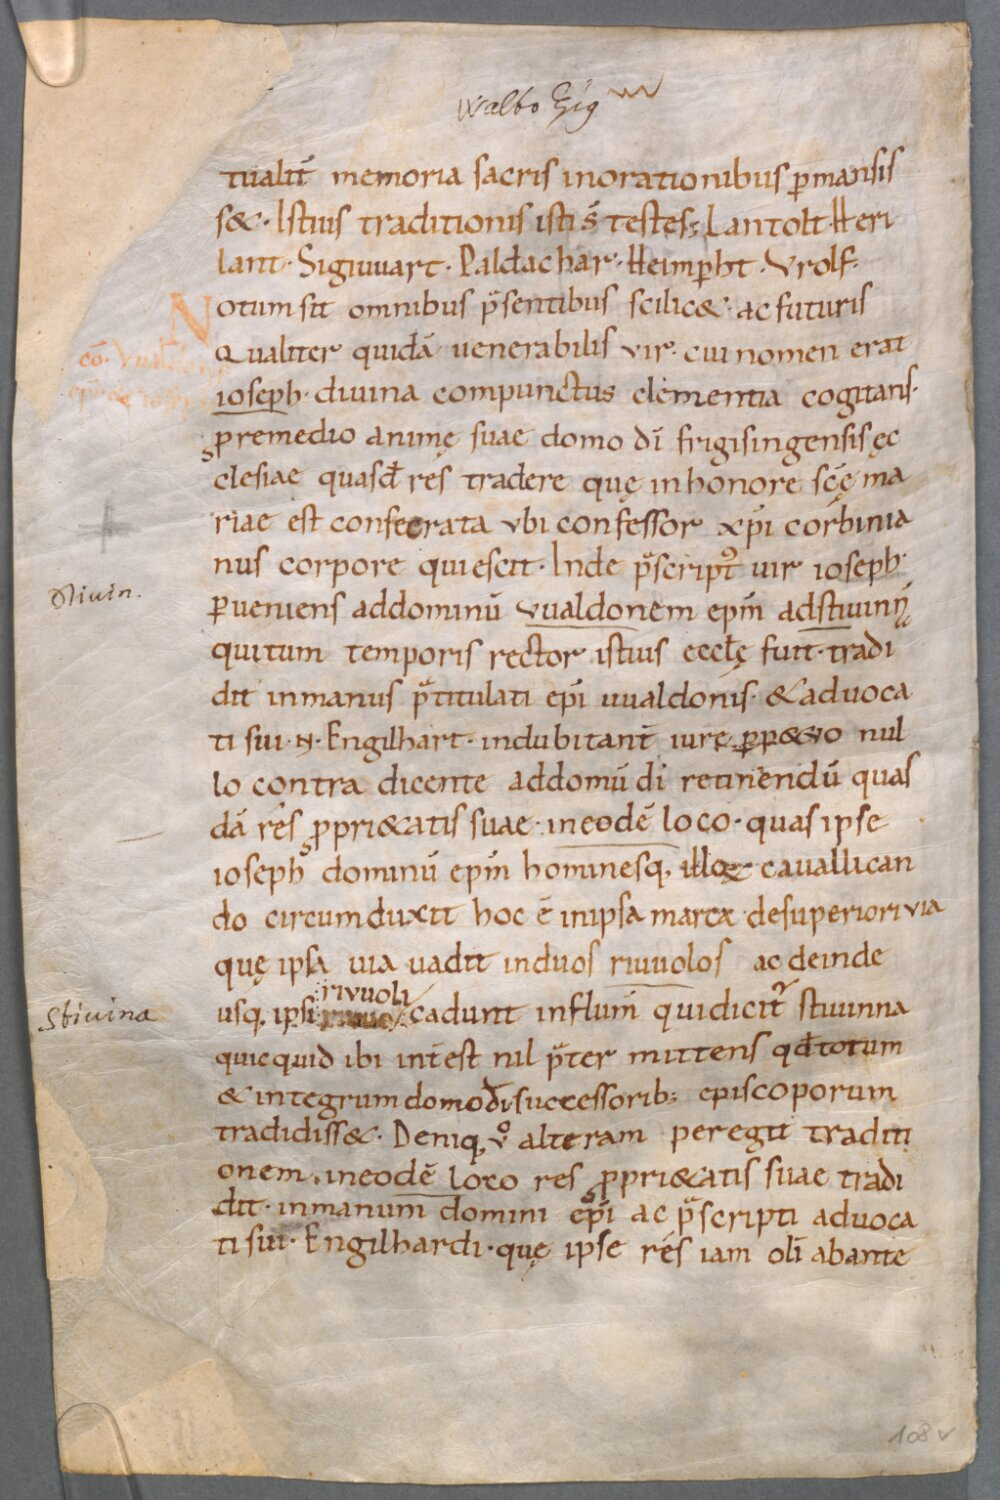 Walbo Eig
tualit̄ memoria sacris inorationibus ꝑmansis
s&. Istius traditionis isti s̄ testes; Lantolt. Heri
lant. Sigiuuart. Paldachar. Heimꝑht. Vrolf.
Notum sit omnibus p̄sentibus scilic& ac futuris
Qualiter quidā uenerabilis vir. cui nomen erat
eō. Vual
ioseph. diuina compunctus clementia cogitans.
ꝓremedio animę suae domo dī frigisingensis ęc
clesiae quasd̄ res tradere quę inhonore scę̄ ma
riae est consecrata vbi confessor xp̄i corbinia
nus corpore quiescit. Inde p̄scriptꝰ uir ioseph.
Stiuin.
ꝑueniens addominū vualdonem ep̄m adstiuinņ
quitum temporis rector istius eccłę fuit. tradi
dit inmanus p̄titulati ep̄i uualdonis. & aduoca
ti sui .N. Engilhart. indubitant̄ iure ꝑp&vo nul
lo contra dicente addomū dī retinendū quas
dā res ꝓpri&atis suae. ineodē loco. quas ipse
ioseph dominū ep̄m hominesq, illoꝝ cauallican
do circumduxit hoc ē inipsa marca desuperiori via
quę ipsa uia uadit induos riuuolos ac deinde
rivuoli
Stiuina
usq, ipsi cadunt influm̄ quidicit᷑ stiuinna
quicquid ibi int̄est nil p̄ter mittens qd̄totum
& integrum domodī successorib; episcoporum
tradidiss&. Deniq, v̊ alteram peregit traditi
onem. ineodē loco res ꝓpri&atis suae tradi
dit. inmanum domini ep̄i ac p̄scripti aduoca
ti sui. Engilhardi. quę ipse res iam olī abante
108v